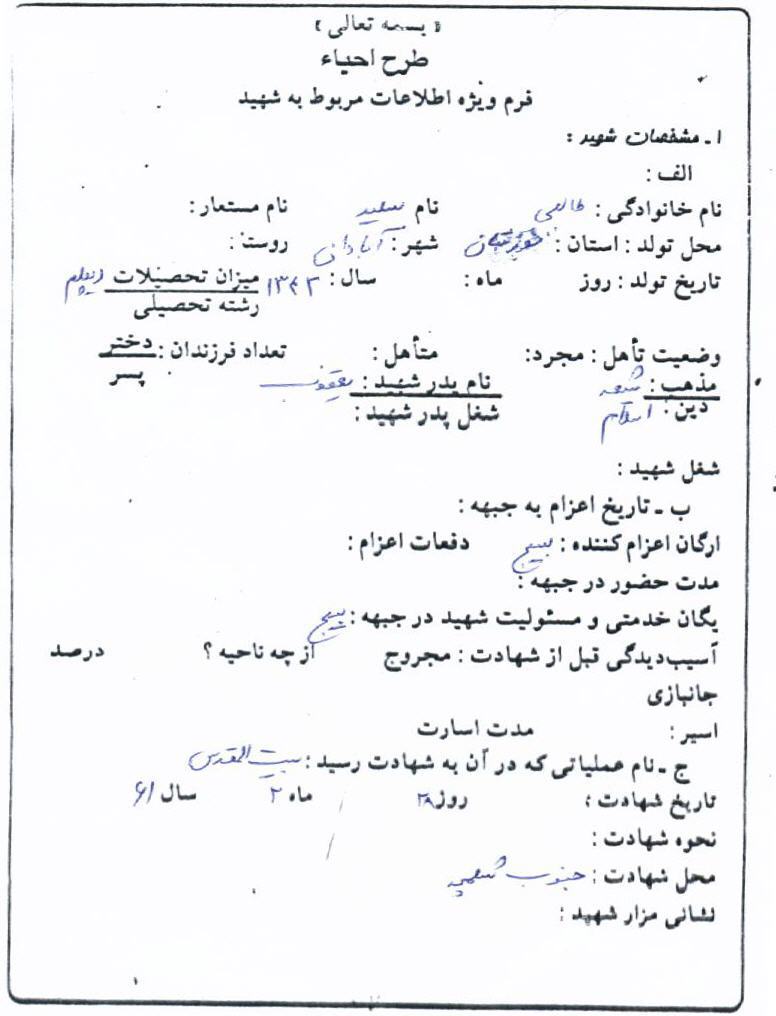 « بسمه تعالی »
طرح احیاء
فرم ویژه اطلاعات مربوط به شهید
۱ ـ مشخصات شهید :
الف :
نام خانوادگی : نام سعید نام مستعار :
محل تولد : استان : خوزستان شهر : آبادان روستا :
تاریخ تولد : روز ماه : سال : ۱۳۴۲ میزان تحصیلات دیپلم
رشته تحصیلی
وضعیت تأهل : مجرد: متأهل : تعداد فرزندان : دختر
پسر
مذهب : شیعه نام پدر شهید : یعقوب
دین : اسلام شغل پدر شهید :
شغل شهید :
ب ـ تاریخ اعزام به جبهه :
ارگان اعزام کننده : بسیج دفعات اعزام :
مدت حضور در جبهه :
یگان خدمتی و مسئولیت شهید در جبهه : بسیج
آسیب‌دیدگی قبل از شهادت : مجروح از چه ناحیه ؟ درصد
جانبازی
اسیر : مدت اسارت
ج ـ نام عملیاتی که در آن به شهادت رسید : بیت المقدس
تاریخ شهادت : روز ۲۸ ماه ۲ سال ۶۱
نحوه شهادت :
محل شهادت : جنوب شلمچه
نشانی مزار شهید :